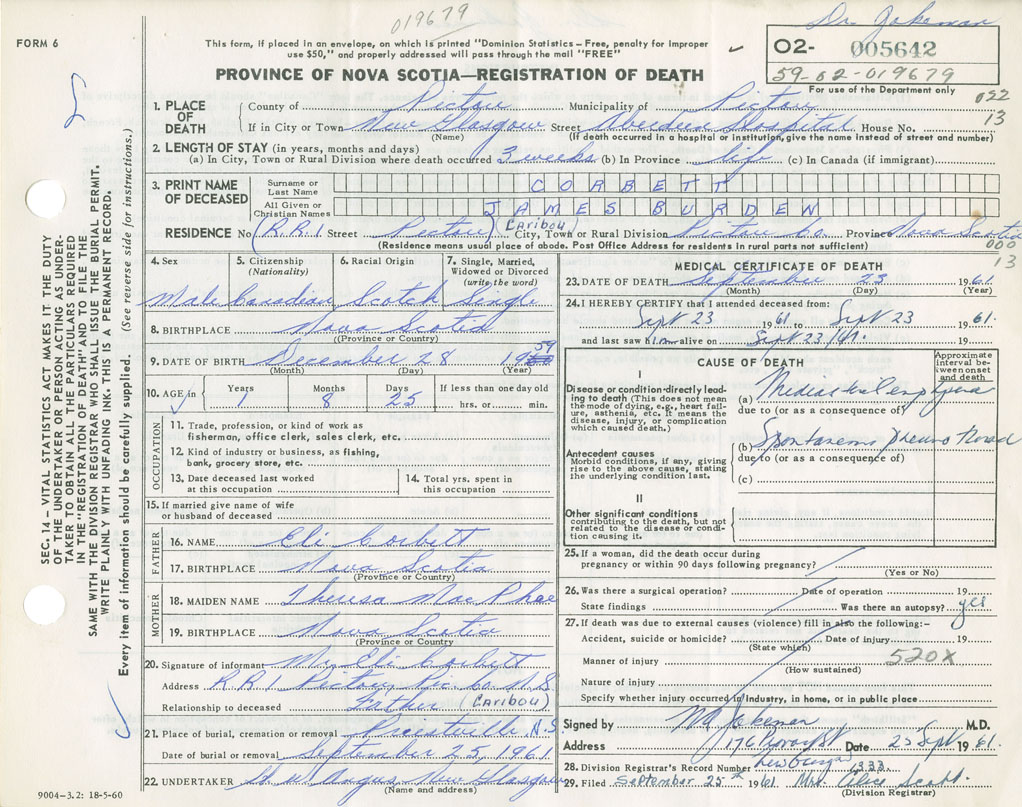 019679
Dr. Jakeman
FORM 6
This form, if placed in an envelope, on which is printed "Dominion Statistics – Free, penalty for improper
use $50," and properly addressed will pass through the mail "FREE"
02- 005642
59-02-019679
For use of the Department only
PROVINCE OF NOVA SCOTIA—REGISTRATION OF DEATH
022
13
1. PLACE OF DEATH County of Pictou Municipality of Pictou
If in City or Town New Glasgow Street Aberdeen Hospital House No.
(Name) (If death occurred in a hospital or institution, give the name instead of street and number)
2. LENGTH OF STAY (in years, months and days)
(a) In City, Town or Rural Division where death occurred 3 weeks (b) In Province life (c) In Canada (if immigrant)
3. PRINT NAME OF DECEASED Surname or Last Name CORBETT
All Given or Christian Names JAMES BURDEN
RESIDENCE No (R.R.1 Street Pictou) (Caribou) City, Town or Rural Division Pictou Co. Province Nova Scotia
(Residence means usual place of abode. Post Office Address for residents in rural parts not sufficient)
000
13
4. Sex 5. Citizenship (Nationality) 6. Racial Origin 7. Single, Married, Widowed or Divorced (write the word)
Male Canadian Scotch Single
8. BIRTHPLACE Nova Scotia
(Province or Country)
9. DATE OF BIRTH December 28 19 59
(Month) (Day) (Year)
10. AGE in Years Months Days If less than one day old
1 8 25 hrs. or min.
OCCUPATION
11. Trade, profession, or kind of work as
fisherman, office clerk, sales clerk, etc.
12. Kind of industry or business, as fishing,
bank, grocery store, etc.
13. Date deceased last worked
at this occupation
14. Total yrs. spent in
this occupation
15. If married give name of wife
or husband of deceased
FATHER
16. NAME Eli Corbett
17. BIRTHPLACE Nova Scotia
(Province or Country)
MOTHER
18. MAIDEN NAME Theresa Mac Phee
19. BIRTHPLACE Nova Scotia
(Province or Country)
20. Signature of informant Mr. Eli Corbett
Address R.R.1 Pictou, Pic. Co. N.S
Relationship to deceased Father (Caribou)
21. Place of burial, cremation or removal N.S
Date of burial or removal September 25, 1961
22. UNDERTAKER Angus, New Glasgow
(Name and address)
MEDICAL CERTIFICATE OF DEATH
23. DATE OF DEATH September 23 1961
(Month) (Day) (Year)
24. I HEREBY CERTIFY that I attended deceased from:
Sept 23 1961 to Sept 23 1961.
and last saw him alive on Sept 23/61. 19
CAUSE OF DEATH
Approximate interval between onset and death
I
Disease or condition directly leading
to death (This does not mean
the mode of dying, e.g., heart failure,
asthenia, etc. It means the
disease, injury, or complication
which caused death.)
(a) Mediastinal
due to (or as a consequence of)
Antecedent causes
Morbid conditions, if any, giving
rise to the above cause, stating
the underlying condition last.
(b) Spontaneous
due to (or as a consequence of)
(c)
II
Other significant conditions
contributing to the death, but not
related to the disease or condition
causing it.
25. If a woman, did the death occur during
pregnancy or within 90 days following pregnancy?
(Yes or No)
26. Was there a surgical operation? Date of operation 19
State findings Was there an autopsy? yes
27. If death was due to external causes (violence) fill in also the following:–
Accident, suicide or homicide? Date of injury 19
(State which)
Manner of injury 520X
(How sustained)
Nature of injury
Specify whether injury occurred in Industry, in home, or in public place
Signed by Jakeman M.D.
Address 176 Provost St Date 25 Sept 1961.
28. Division Registrar's Record Number 1333.
29. Filed September 25th 1961 Mrs. Alice Scott.
(Division Registrar)
9004-3.2: 18-5-60
SEC. 14 – VITAL STATISTICS ACT MAKES IT THE DUTY
OF THE UNDERTAKER OR PERSON ACTING AS UNDERTAKER
TO OBTAIN ALL THE PARTICULARS REQUIRED
IN THE "REGISTRATION OF DEATH" AND TO FILE THE
SAME WITH THE DIVISION REGISTRAR WHO SHALL ISSUE THE BURIAL PERMIT.
WRITE PLAINLY WITH UNFADING INK. THIS IS A PERMANENT RECORD.
Every item of information should be carefully supplied. (See reverse side for instructions.)